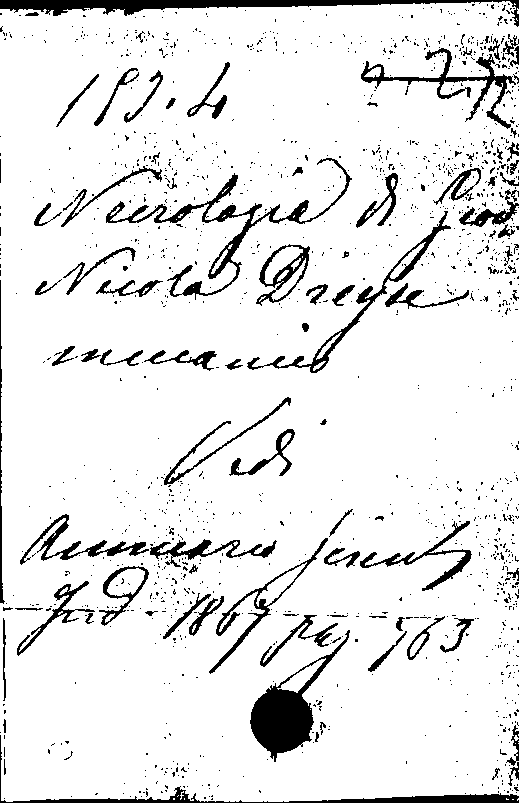 193.4
Necrologia di Giov.
Nicola Dreyse
meccanico
Vedi
Annuario scient
Ind. 1867 pag. 763